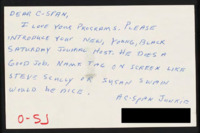 DEAR C-SPAN,
I LOVE YOUR PROGRAMS. PLEASE
INTRODUCE YOUR NEW, YOUNG, BLACK
SATURDAY JOURNAL HOST. HE DOES A
GOOD JOB. NAME TAG ON SCREEN LIKE
STEVE SCULLY OR SUSAN SWAIN
WOULD BE NICE.
A C-SPAN JUNKIE
O-SJ